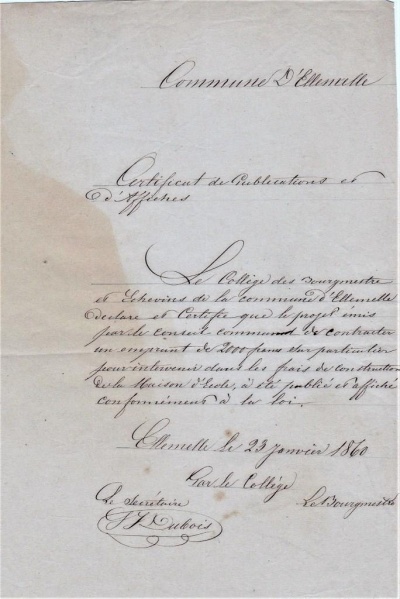 Commune D'Ellemelle
Certificat de Publications et
d'Affiches
Le Collége des Bourgmestre
et Echevins de la commune d'Ellemelle
déclare et Certifie que le projet émis
par le conseil communal de contracter
un emprunt de 2000 francs d'un particulier
pour intervenir dans les frais de construction
de la Maison d'Ecole, à été publié et affiché
conformément à la loi.
Ellemelle le 23 janvier 1860
Par le Collége
Le Secrétaire
Le Bourgmestre
Dubois